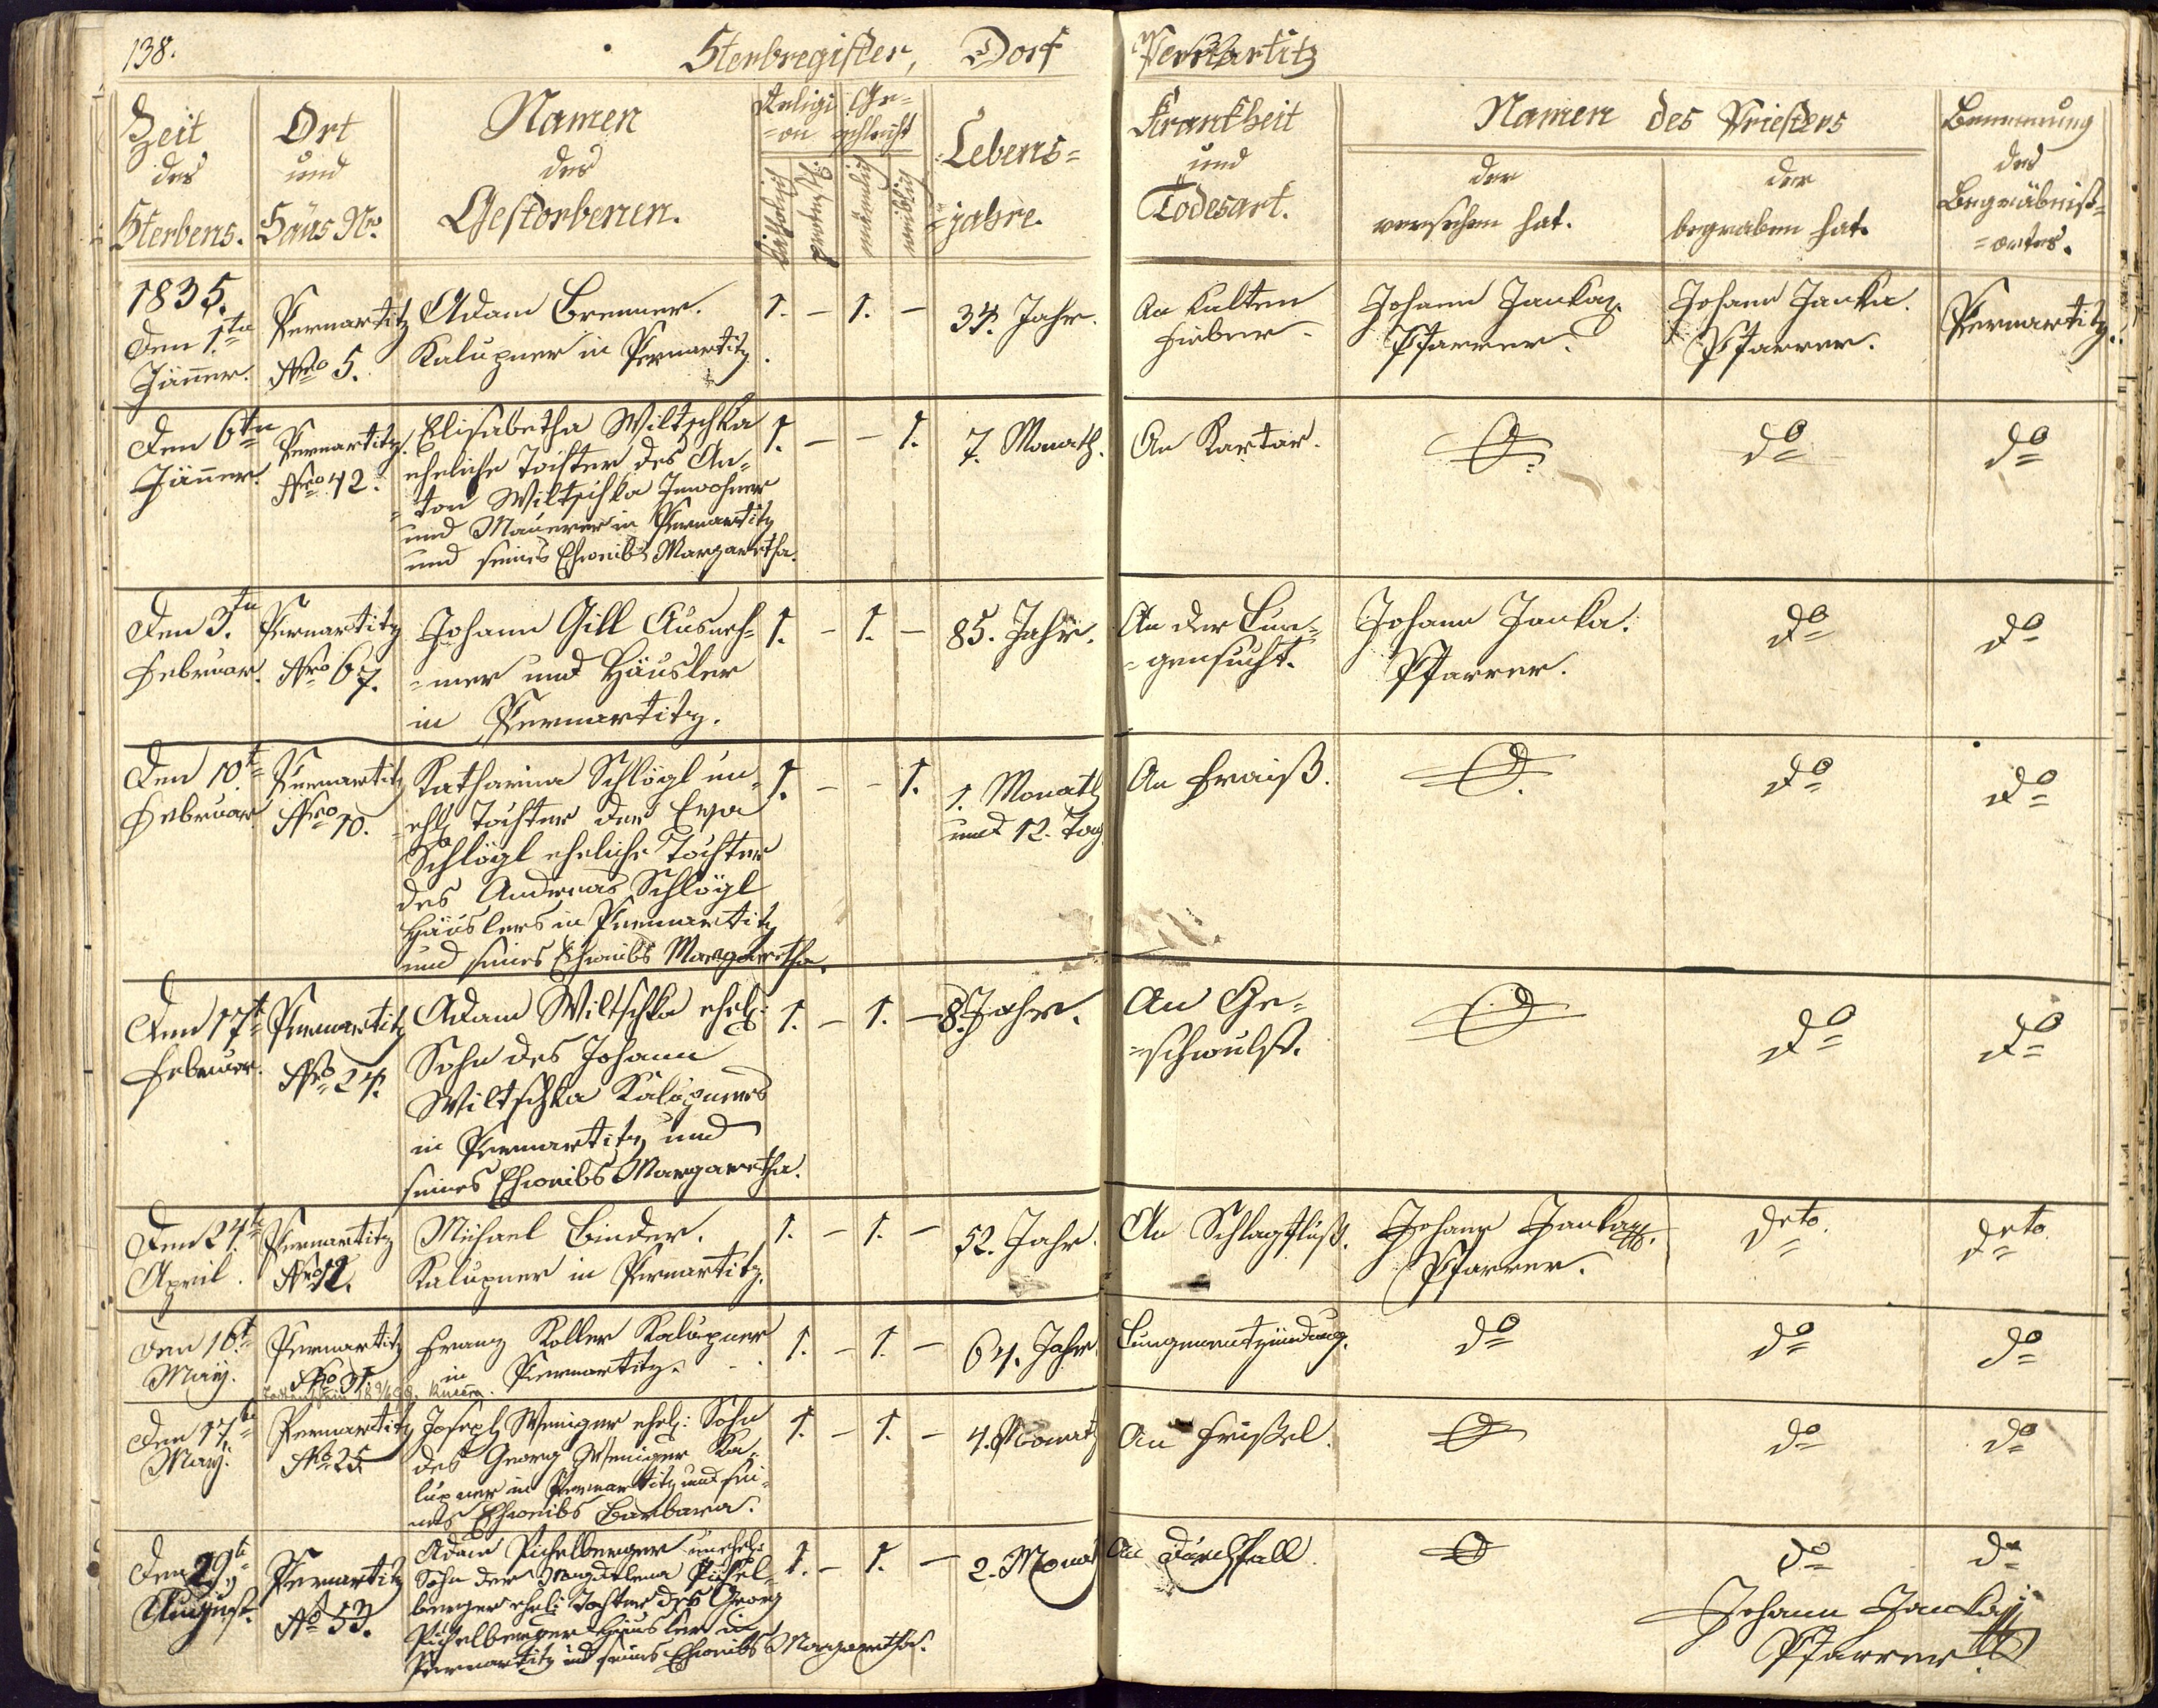 138.
Sterbregister, Dorf Pernartitz
Zeit des Sterbens.
Ort und Haus Nro.
Namen des Gestorbenen.
Religion
katholisch
protest:
Geschlecht
männlich
weiblich
Lebensjahre.
Krankheit und Todesart.
Namen des Priesters
der versehen hat.
der begraben hat.
Benennung des Begräbniß=ortes.
1835.
Den 1ten Pernartitz Adam Brenner. 1. – 1. – 34. Jahr. An kalten Johann Janka Johann Janka. Pernartitz.
Jänner. Nro 5. Kalupner in Pernartitz. Fieber. Pfarrer. Pfarrer.
Den 6ten Pernartitz. Elisabetha Wiltschka 1. – – 1. 7. Monath. An Kartar. do do
Jänner. Nro 42. eheliche Tochter des An=
=ton Wiltschka Inwohner
und Maurer in Pernartitz
und seines Eheweibs Margaretha.
Den 3.tn Pernartitz Johann Gill Ausneh= 1. – 1. – 85. Jahr. An der Lun= Johann Janka. do do
Februar. Nro 67. =mer und Häusler =gensucht. Pfarrer.
in Pernartitz.
Den 10t Pernartitz Katharina Schlögl un= 1. – – 1. 1. Monath An Fraiß. do do
Februar Nro 10. =ehl. Tochter der Eva und 12. Tag
Schlögl eheliche Tochter
des Andreas Schlögl
Häuslers in Pernartitz
und seines Eheweibs Margaretha.
Den 17t Pernartitz Adam Wiltschka ehel: 1. – 1. – 8. Jahr. An Ge= do do
Februar. Nro 24. Sohn des Johann =schwulst.
Wiltschka Kalupners
in Pernartitz und
seines Eheweibs Margaretha.
Den 24t Pernartitz Michael Binder. 1. – 1. – 52. Jahr. An Schlagfluß. Johann Janka. deto. deto
April. Nro 12. Kalupner in Pernartitz. Pfarrer.
Den 16t Pernartitz Franz Koller Kalupner 1. – 1. – 64. Jahr. Lungenentzündung. do do do
May. Nro 31. in Pernartitz.
Den 17t Pernartitz Joseph Weniger ehel: Sohn 1. – 1. – 4. Monath An Frißel. do do
May. Nro 25 des Georg Weniger Ka=
lupner in Pernartitz und sei=
nes Eheweibs Barbara.
Den 29t Pernartitz Adam Pichelberger unehel: 1. – 1. – 2. Monat An Durchfall. do do
August. No 53. Sohn der Magdalena Pichel=
berger ehel: Tochter des Georg
Pichelberger Häusler in
Pernartitz und seines Eheweibs Margaretha.
Johann Janka
Pfarrer